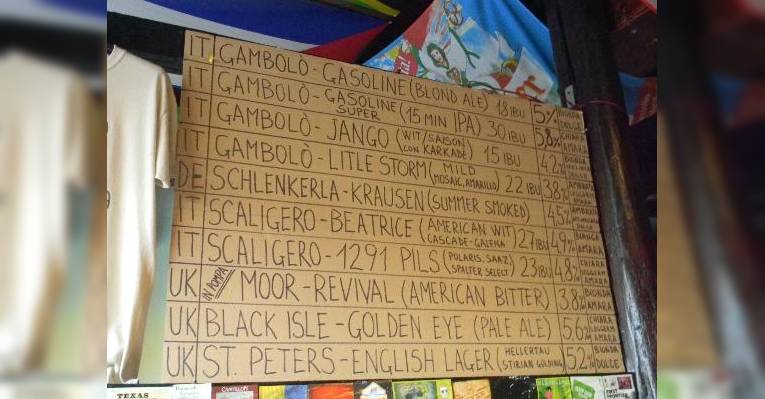 IT GAMBOLÒ - GASOLINE (BLOND ALE) 18 IBU 5% BIONDA DOLCE
IT GAMBOLÒ - GASOLINE SUPER (15 MIN IPA) 30 IBU 5,8% CHIARA AMARA
IT GAMBOLÒ - JANGO (WIT/SAISON CON KARKADÈ) 15 IBU 4,2% BIONDA
IT GAMBOLÒ - LITLE STORM (MILD MOSAIC, AMARILLO) 22 IBU 3,8% AMBRATA
DE SCHLENKERLA - KRAUSEN (SUMMER SMOKED) 4,5% AMBRATA
IT SCALIGERO - BEATRICE (AMERICAN WIT CASCADE - GALENA) 27 IBU 4,9% BIONDA AMARA
IT SCALIGERO - 1291 PILS (POLARIS, SAAZ SPALTER SELECT) 23 IBU 4,8% CHIARA LEGGERM AMARA
UK IN POMPA MOOR - REVIVAL (AMERICAN BITTER) 3,8% BIONDA AMARA
UK BLACK ISLE - GOLDEN EYE (PALE ALE) 5,6% CHIARA LEGGERM AMARA
UK ST. PETERS - ENGLISH LAGER (HELLERTAU STIRIAN GOLDING) 5,2% BIONDA DOLCE
TEXAS